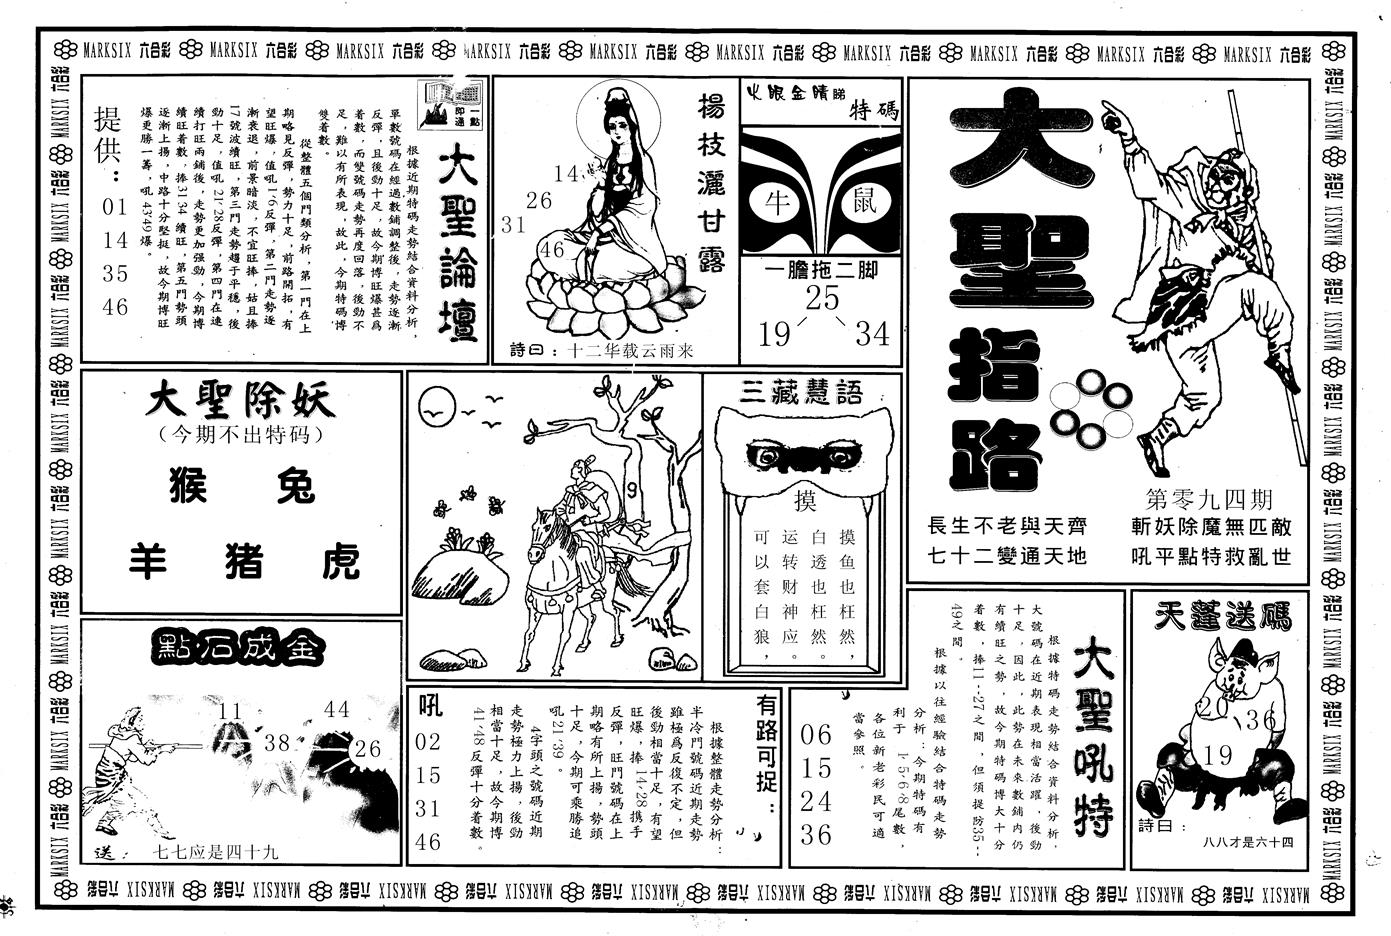 MARKSIX 六合彩 MARKSIX 六合彩 MARKSIX 六合彩 MARKSIX 六合彩 MARKSIX 六合彩 MARKSIX 六合彩 MARKSIX 六合彩 MARKSIX 六合彩 MARKSIX 六合彩 MARKSIX 六合彩
大聖指路
第零九四期
長生不老與天齊
七十二變通天地
斬妖除魔無匹敵
吼平點特救亂世
火眼金睛睇
特碼
牛
鼠
一膽拖二脚
25
19
34
楊枝灑甘露
14
26
31
46
詩曰：十二华载云雨来
一點即通
大聖論壇
根據近期特碼走勢結合資料分析，
單數號碼在經過數鋪調整後，走勢逐漸
反彈，且後勁十足，故今期博旺爆甚爲
着數，而雙號碼走勢再度回落，後勁不
足，難以有所表現，故此，今期特碼博
雙着數。
從整體五個門類分析，第一門在上
期略見反彈，勢力十足，前路開拓，有
望旺爆，值吼1·6反彈，第二門走勢逐
漸衰退，前景暗淡，不宜旺捧，姑且捧
17號波續旺，第三門走勢趨于平穩，後
勁十足，值吼21·28反彈，第四門在連
續打旺兩鋪後，走勢更加强勁，今期博
續旺着數，捧31·34續旺，第五門勢頭
逐漸上揚，中路十分堅挺，故今期博旺
爆更勝一籌，吼43·49爆。
提供：
01
14
35
46
大聖除妖
（今期不出特码）
猴 兔
羊 猪 虎
9
三藏慧語
摸
摸鱼也枉然，
白透也枉然。
运转财神应。
可以套白狼，
點石成金
11
44
38
26
送：七七应是四十九
有路可捉：
根據整體走勢分析：
半冷門號碼近期走勢
雖極爲反復不定，但
後勁相當十足，有望
旺爆，捧14·28携手
反彈，旺門號碼在上
期略有所上揚，勢頭
十足，今期可乘勝追
吼21·39。
4字頭之號碼近期
走勢極力上揚，後勁
相當十足，故今期博
41·48反彈十分着數。
吼
02
15
31
46
大聖吼特
根據特碼走勢結合資料分析，
大號碼在近期表現相當活躍，後勁
十足，因此，此勢在未來數鋪内仍
有續旺之勢，故今期特碼博大十分
着數，捧11--27之間，但須提防35--
49之間。
根據以往經驗結合特碼走勢
分析：今期特碼有
利于 1·5·6·8尾數，
各位新老彩民可適
當參照。
06
15
24
36
天蓬送碼
20
36
19
詩曰：
八八才是六十四